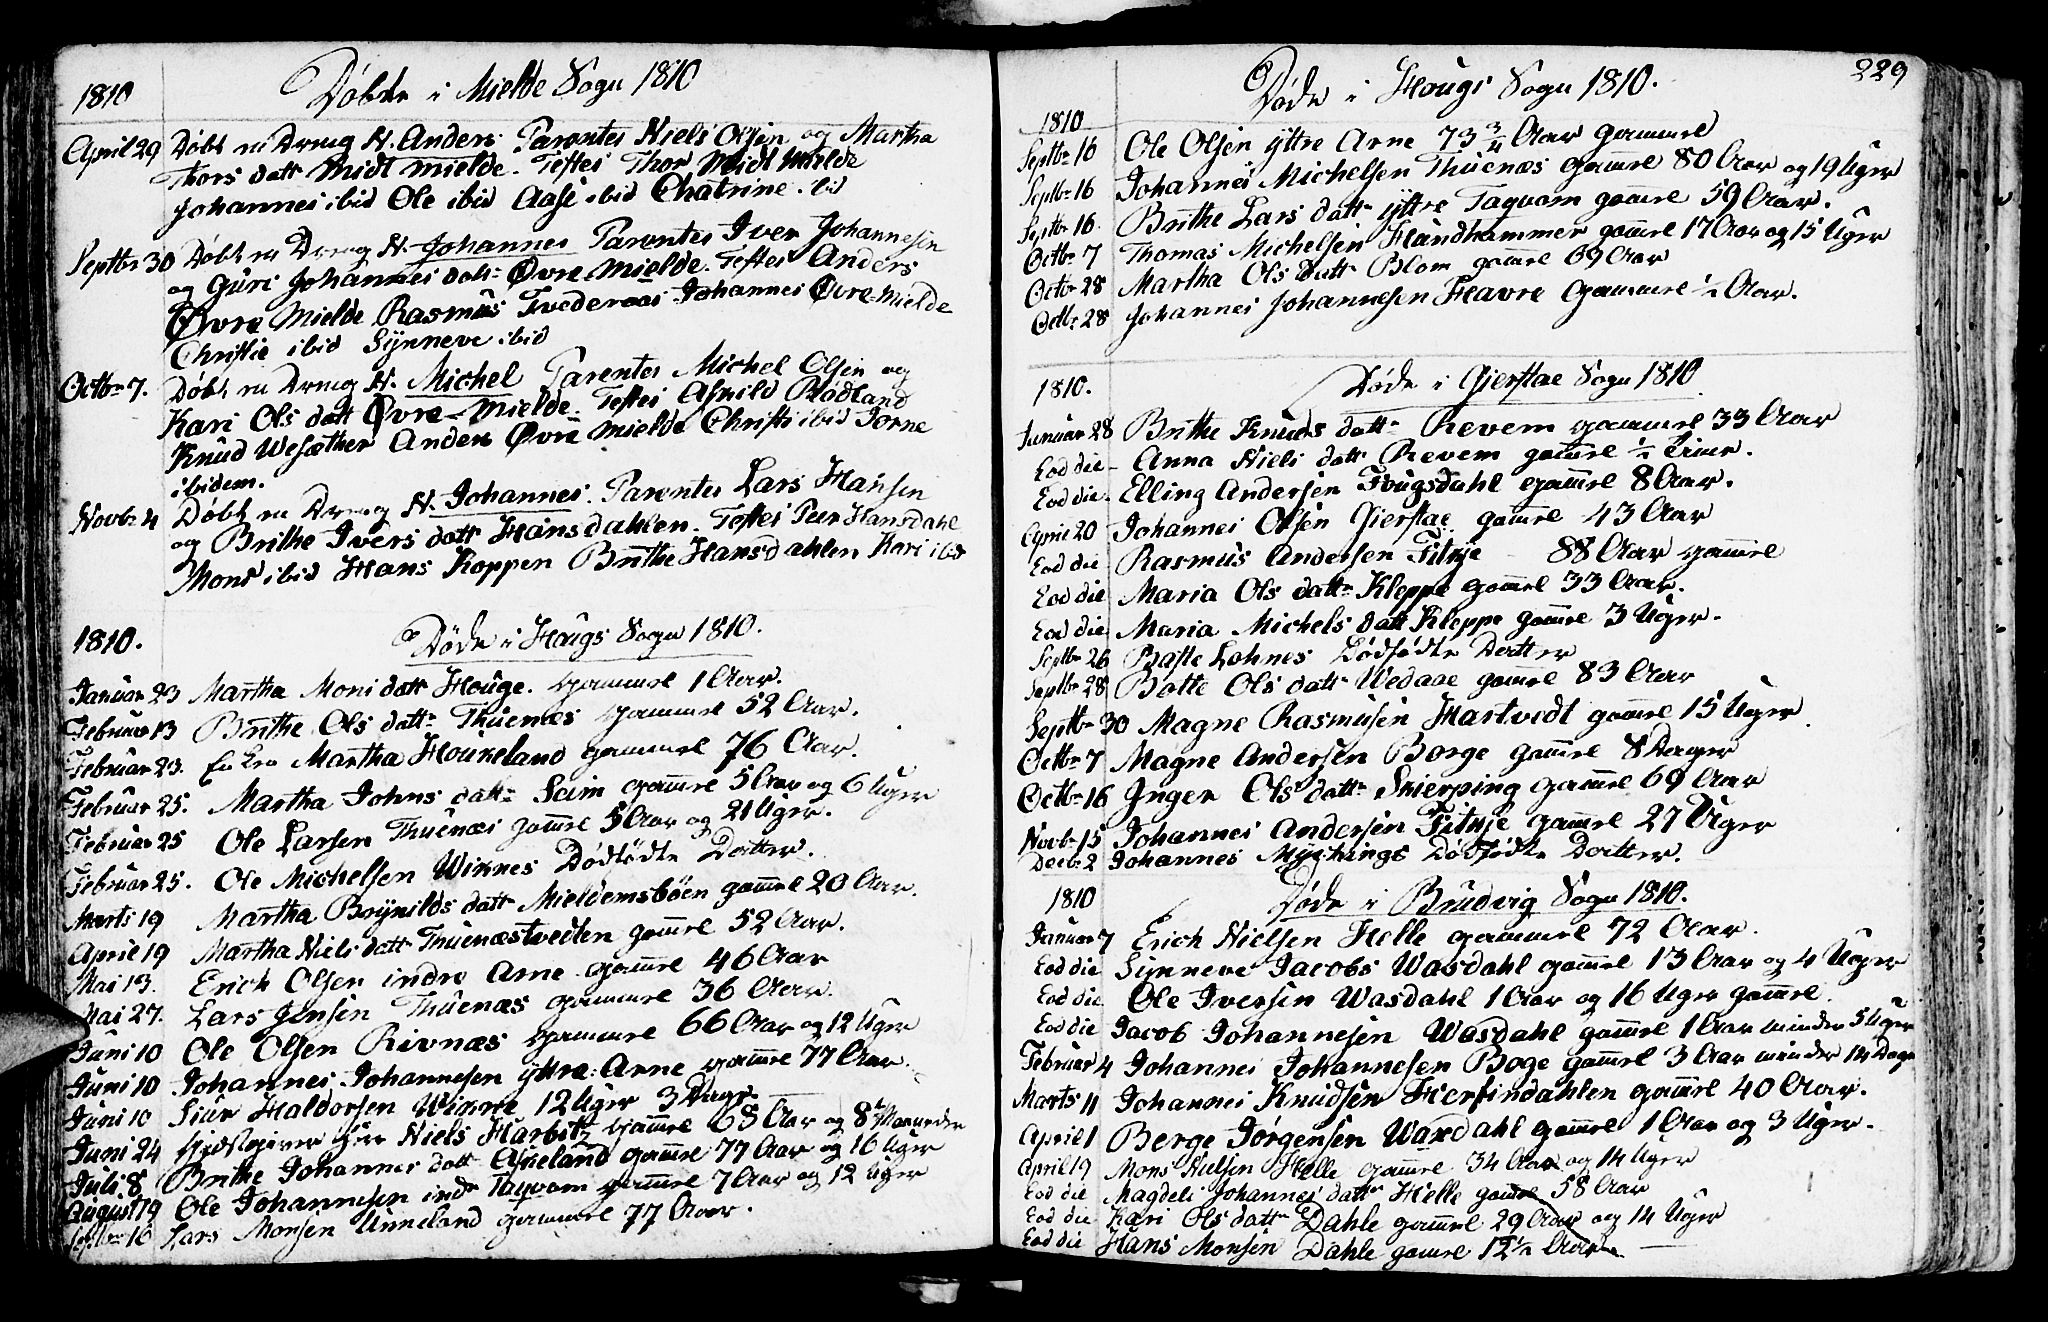 1810 Døbte i Mielde Sogn 1810
April 29 Døbt en Dreng N. Anders. Parentes Niels Olsen og Martha
Thors datt Midt mielde. Testes Thor Midt Mielde
Johannes ibid Ole ibid Aase ibid Chatrine ibid
Septbr 30 Døbt en Dreng N. Johannes Parentes Iver Johannesen
og Guri Johannes datt Øvre Mielde. Testes Anders
Øvre Mielde Rasmus Tvederaas Johannes Øvre-Mielde
Christie ibid Synneve ibid
Octbr 7. Døbt en Dreng N. Michel Parentes Michel Olsen og
Kari Ols datt Øvre-Mielde. Testes Askild Rødland
Knud Wesæther Anders Øvre Mielde Christi ibid
ibidem.
Novbr 4 Døbt en Dreng N. Johannes. Parentes Lars Hansen
og Brithe Ivers datt Hansdahlen. Testes Peer Hansdahl
Mons ibid Hans Koppen Brithe Hansdahlen Kari ibid
1810. Døde i Hougs Sogn 1810.
Januar 23 Martha Mons datt Houge. gammel 1 Aar.
Februar 13 Brithe Ols datter Thuenæs gammel 52 Aar.
Februar 23. Enken Martha Houkeland gammel 76 Aar.
Februar 25. Martha Johns datter Seim gamel 5 Aar og 6 Uger
Februar 25 Ole Larsen Thuenæs gamel 5 Aar og 21 Uger.
Februar 25. Ole Michelsen Wiknes Dødfødte Datter.
Marts 19 Martha Brynilds datt Mieldemsbøen gammel 20 Aar.
April 19 Martha Niels datt Thuenæstvedten gamel 52 Aar.
Mai 13. Erich Olsen indre Arne gamel 46 Aar
Mai 27. Lars Jensen Thuenæs gammel 36 Aar.
Juni 10 Ole Olsen Rivnæs gammel 66 Aar og 12 Uger
Juni 10 Johannes Johannesen yttre Arne gamel 77 Aar.
Juni 10 Siur Haldorsen Wikne 12 Uger 3 Dage
Juni 24 Herr Niels Harbitz gammel 68 Aar og 8 Maaneder
Juli 8 Brithe Johannes datt gamel 77 Aar og 16 Uger
August 19 Ole Johannesen indre Taqvam gammel 7 Aar og 12 Uger
Septbr 16 Lars Monsen Unneland gammel 77 Aar.
229
Døde i Hougs Sogn 1810.
1810
Septbr 16 Ole Olsen yttre Arne 73 3/4 Aar gammel
Septbr 16 Johannes Michelsen Thuenæs gamel 80 Aar og 19 Uger
Septbr 16. Brithe Lars datter yttre Taqvam gamel 59 Aar.
Octbr 7 Thomas Michelsen Haundhammer gamel 17 Aar og 15 Uger
Octbr 28 Martha Ols datt Blom gamel 69 Aar
Octbr 28 Johannes Johannesen Havre gammel 1/2 Aar.
1810. Døde i Gierstae Sogn 1810
Januar 28 Brithe Knuds datter Revem gammel 33 Aar
Eod die Anna Niels datt Revem gamel 1/2 Time.
Eod die Elling Andersen Fougsdahl gamel 8 Aar.
April 20 Johannes Olsen Gierstae gamel 43 Aar
Eod die Rasmus Andersen Fitkje 88 Aar gammel
Eod die Maria Ols datter Kleppe gamel 33 Aar.
Eod die Maria Michels datt Kleppe gamel 3 Uger.
Septbr 26 Baste Lohnes Dødfødte Datter
Septbr 28 Botte Ols datter Wedaae gamel 83 Aar
Septbr 30 Magne Rasmusen Hartvedt gamel 15 Uger
Octbr 7 Magne Andersen Borge gamel 8 Dager
Octbr 16 Inger Ols datter Skierping gammel 69 Aar
Novbr 15 Johannes Andersen Fitkje gamel 27 Uger
Decbr 2 Johannes Myckings Dødfødte Datter.
1810 Døde i Brudvig Sogn 1810.
Januar 7 Erich Nielsen Helle gammel 72 Aar.
Eod die Synneve Jacobs Wasdahl gamel 13 Aar og 4 Uger
Eod die Ole Iversen Wasdahl 1 Aar og 16 Uger gamel
Eod die Jacob Johannesen Wasdahl gamel 1 Aar minder 5 Uger
Februar 4 Johannes Johannesen Boge gamel 3 Aar minder 14 Dage
Marts 11 Johannes Knudsen Herfindahlen gamel 40 Aar.
April 1 Berge Jørgensen Waxdahl gamel 1 Aar og 3 Uger.
April 19 Mons Nielsen Helle gamel 34 Aar og 14 Uger
Eod die Magdeli Johannes datter Helle gamel 58 Aar
Eod die Kari Ols datter Dahle gamel 29 Aar og 14 Uger
Eod die Hans Monsen Dahle gamel 12 1/2 Aar